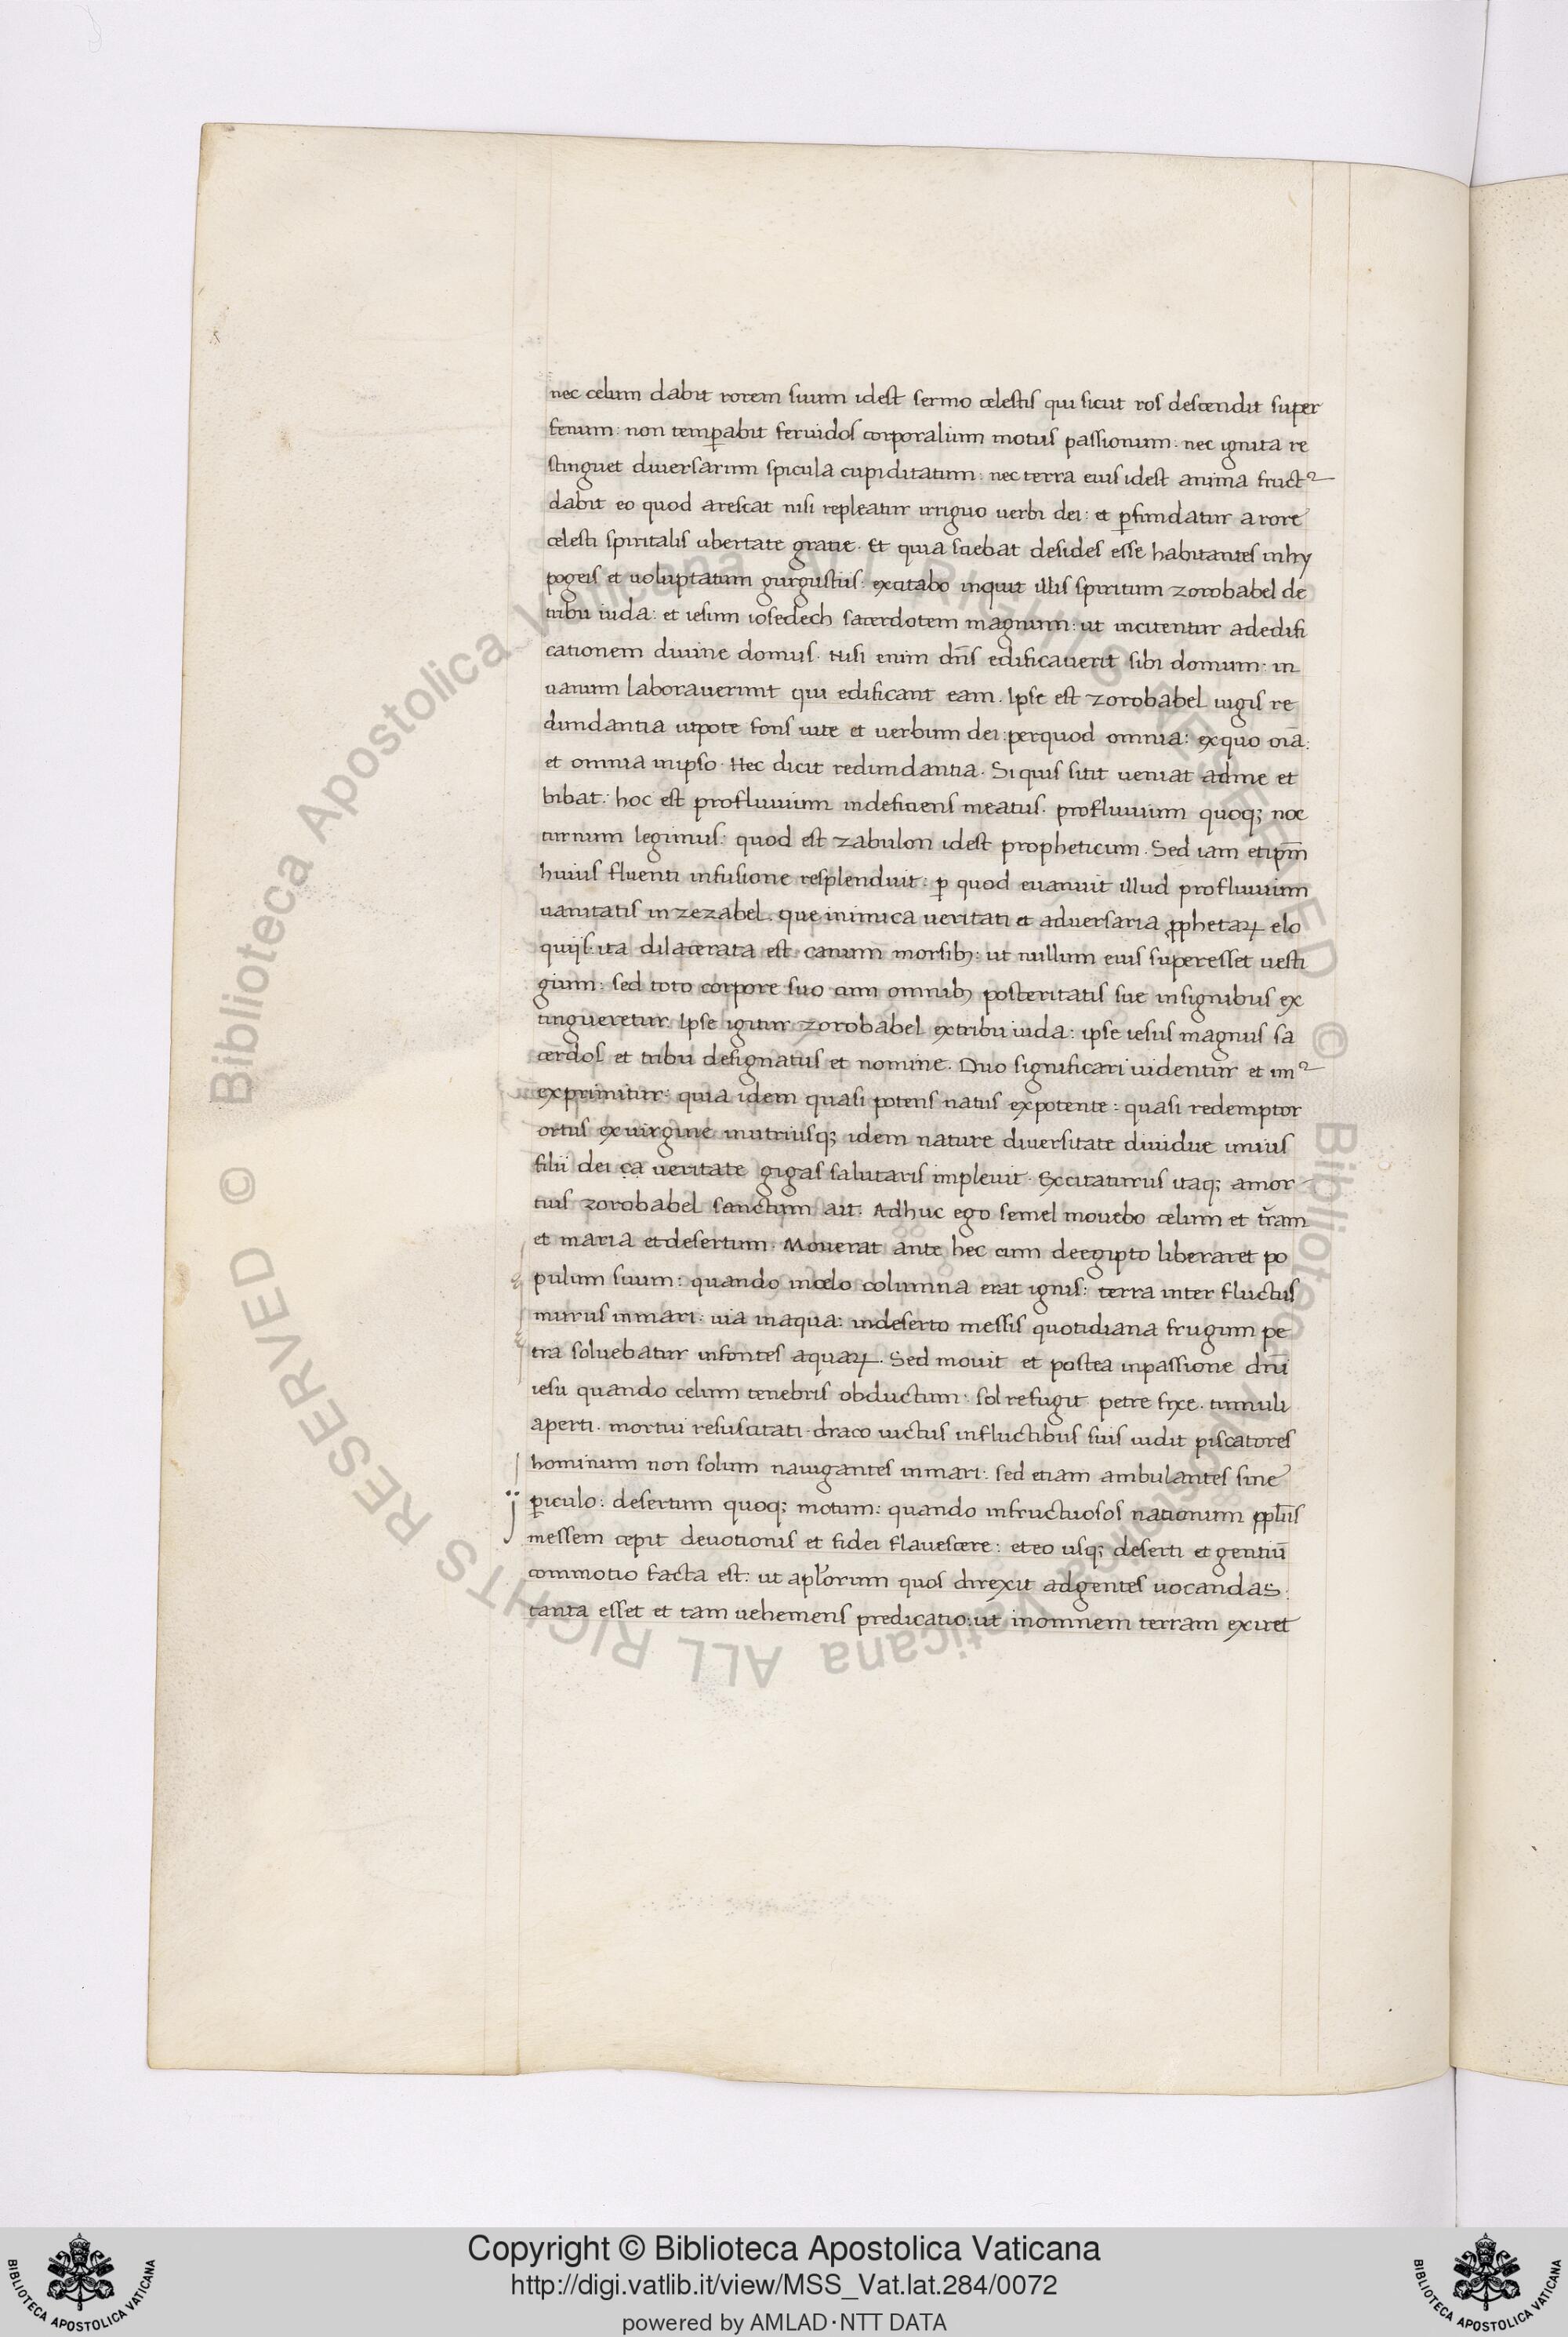 nec celum dabit rorem suum idest sermo celestis qui sicut ros descendit super
fenum: non temꝑabit feruidos corporalium motus passionum. nec ignita re
stinguet diuersarum spicula cupiditatum: nec terra eius idest anima fruct᷒
dabit eo quod arescat nisi repleatur irriguo uerbi dei: et ꝑfundatur a rore
celesti spiritalis ubertate gratie. Et quia sciebat desides esse habitantes in hy
pogeis et uoluptatum gurgustiis: excitabo inquit illis spiritum zorobabel de
tribu iuda: et iesum iosedech sacerdotem magnum: ut incitentur ad edifi
cationem diuine domus. Nisi enim dn̄s edificauerit sibi domum: in
uanum laborauerunt qui edificant eam. Ipse est zorobabel iugis re
dundantia utpote fons uite et uerbum dei: per quod omnia: ex quo oīa:
et omnia in ipso. Hec dicit redundantia. Si quis sitit ueniat ad me et
bibat: hoc est profluuium indeficiens meatus. profluuium quoq; noc
turnum legimus: quod est zabulon idest propheticum. Sed iam et ip̄m
huius fluenti infusione resplenduit: ꝑ quod euanuit illud profluuium
uanitatis in zezabel. que inimica ueritati et aduersaria ꝓphetaꝝ elo
quijs. ita dilacerata est canum morsibꝫ: ut nullum eius superesset uesti
gium: sed toto corpore suo cum omnibꝫ posteritatis sue insignibus ex
tingueretur. Ipse igitur zorobabel ex tribu iuda: ipse iesus magnus sa
cerdos et tribu designatus et nomine. Duo significari uidentur et un᷒
exprimitur: quia idem quasi potens natus ex potente: quasi redemptor
ortus ex uirgine in utriusq; idem nature diuersitate diuidue unius
filii dei ca ueritate gigas salutaris impleuit. Excitaturus itaq; a mor
tuis zorobabel sanctum ait. Adhuc ego semel mouebo celum et tr̄am
et maria et desertum. Mouerat ante hec cum de egipto liberaret po
pulum suum: quando in celo columna erat ignis: terra inter fluctus
murus in mari: uia in aqua: in deserto messis quotidiana frugum pe
tra soluebatur in fontes aquaꝝ. Sed mouit et postea in passione dn̄i
iesu quando celum tenebris obductum: sol refugit petre scisse. tumuli
aperti. mortui resuscitati. draco uictus in fluctibus suis uidit piscatores
hominum non solum nauigantes in mari: sed etiam ambulantes sine
ꝑiculo: desertum quoq; motum: quando infructuosos nationum ppl̄is
messem cepit deuotionis et fidei flauescere: et eo usq; deserti et gentiū
commotio facta est: ut apl̄orum quos direxit ad gentes uocandas.
tanta esset et tam uehemens predicatio: ut in omnem terram exiret
Copyright © Biblioteca Apostolica Vaticana
http://digi.vatlib.it/view/MSS_Vat.lat.284/0072
powered by AMLAD·NTT DATA